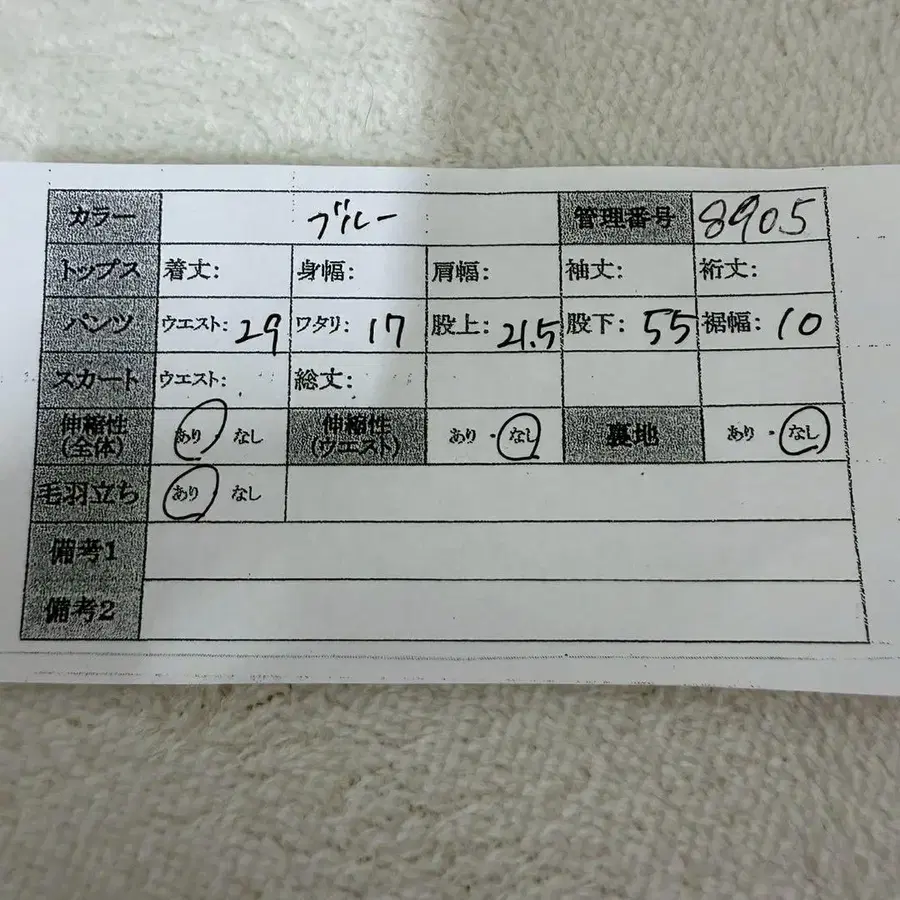 カラー ブルー 管理番号 8905
トップス 着丈: 身幅: 肩幅: 袖丈: 裄丈:
パンツ ウエスト: 29 ワタリ: 17 股上: 21.5 股下: 55 裾幅: 10
スカート ウエスト: 総丈:
伸縮性 伸縮性
(全体) あり なし (ウエスト) あり ・ なし 裏地 あり ・ なし
毛羽立ち あり なし
備考1
備考2